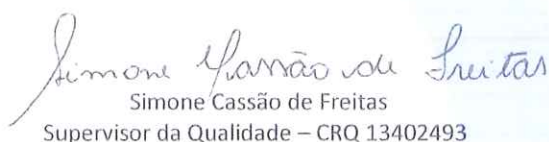 Simone Cassão de Freitas
Simone Cassão de Freitas
Supervisor da Qualidade – CRQ 13402493